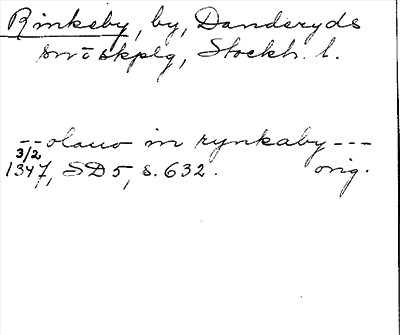 Rinkeby, by, Danderyds
sn o skplg, Stockh. l.
--olauo in rynkaby---
3/2
1347, SD 5, s. 632. orig.